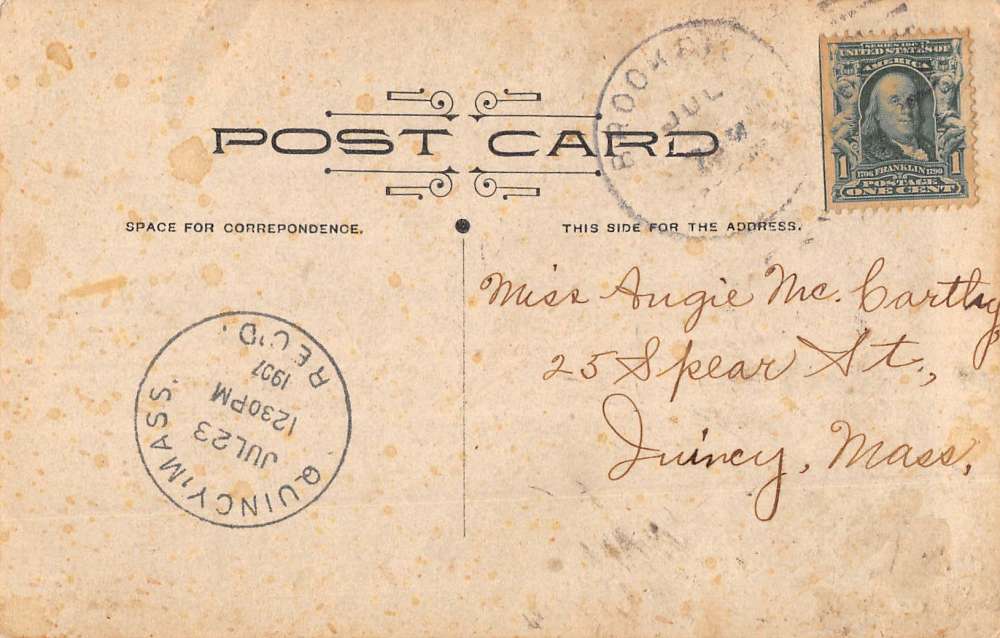 POST CARD
SPACE FOR CORREPONDENCE.
THIS SIDE FOR THE ADDRESS.
JUL
SERIES 1902
UNITED STATES OF
AMERICA
1
1
1706 FRANKLIN 1790
POSTAGE
ONE CENT
Miss Angie Mc. Carthy
25 Spear St.,
Quincy, Mass.
QUINCY, MASS.
JUL 23
1230PM
1907
REC'D.